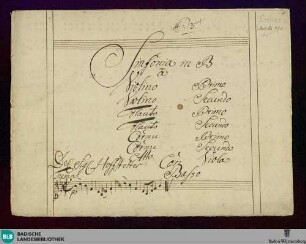 Sinfonia in B
à
Violino Primo
Violino Secundo
Flauto Primo
Flauto Secundo
Cornu Primo
Cornu Secundo
Viola
Del Sigl: Hoffstetter Con
Basso
BLB BADISCHE
LANDESBIBLIOTHEK
Baden-Württemberg